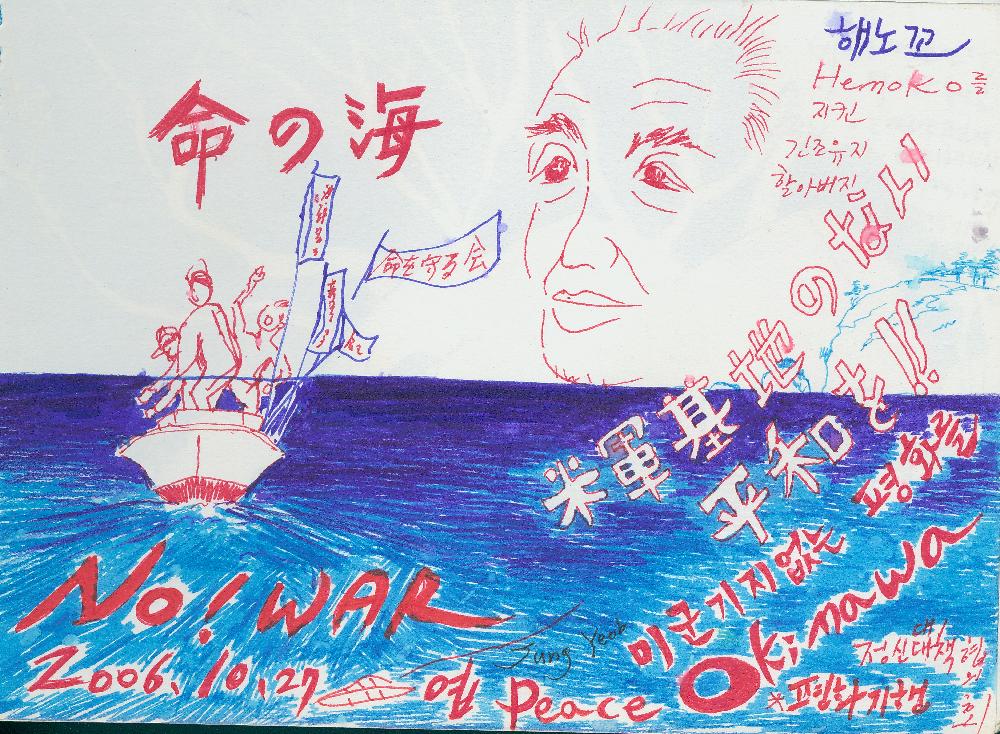 命の海
해노꼬
Hemoko를
지킨
긴조유지
할아버지
命を守る会
米軍基地のない
平和を!!
미군기지없는
평화를
No! WAR
2006.10.27
엽
Jung Yeob
Peace Okinawa
정신대대책협의회
*평화기행